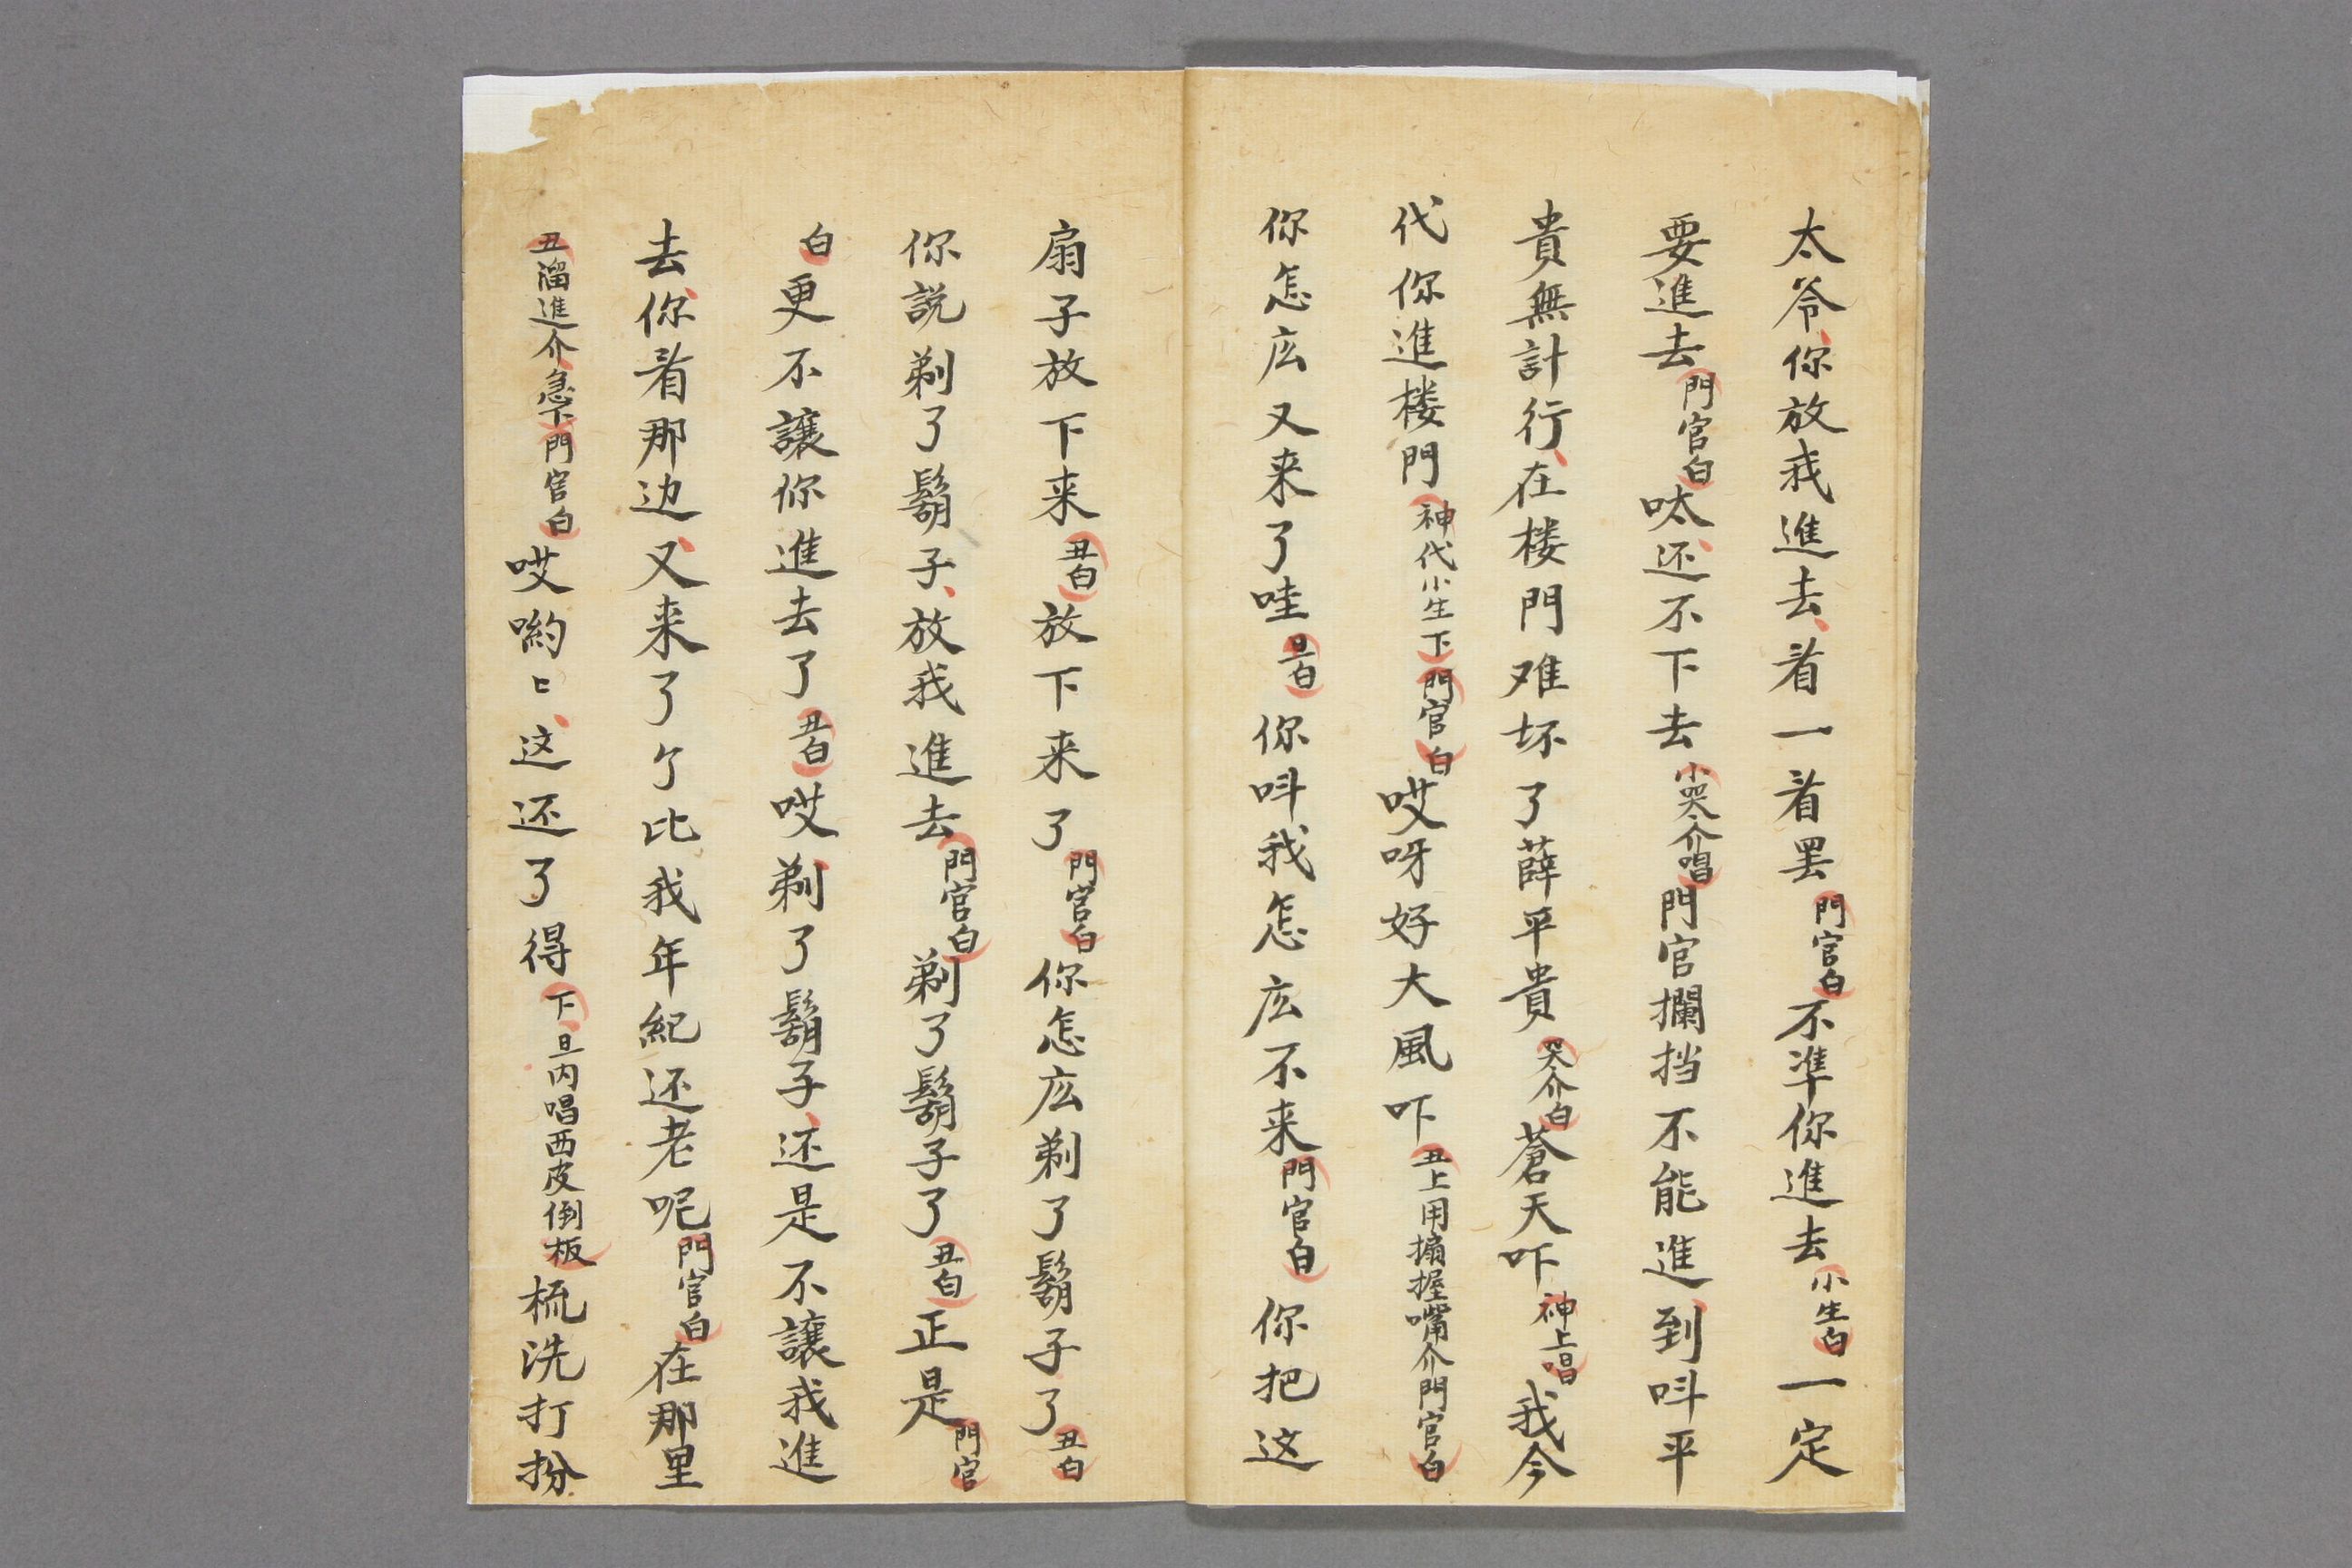 太爷你放我進去看一看罢門官白不凖你進去小生白一定
要進去門官白呔还不下去小哭介唱門官攔挡不能進到呌平
貴無計行在楼門难坏了薛平貴哭介白蒼天吓神上唱我今
代你進楼門神代小生下門官白哎呀好大風吓丑上用搧握嘴介門官白
你怎庅又来了哇丑白你呌我怎庅不来門官白你把这
扇子放下来丑白放下来了門官白你怎庅剃了鬍子了丑白
你説剃了鬍子放我進去門官白剃了鬍子了丑白正是門官
白更不讓你進去了丑白哎剃了鬍子还是不讓我進
去你看那边又来了个比我年紀还老呢門官白在那里
丑溜進介急下門官白哎喲〻这还了得下旦内唱西皮倒板梳洗打扮